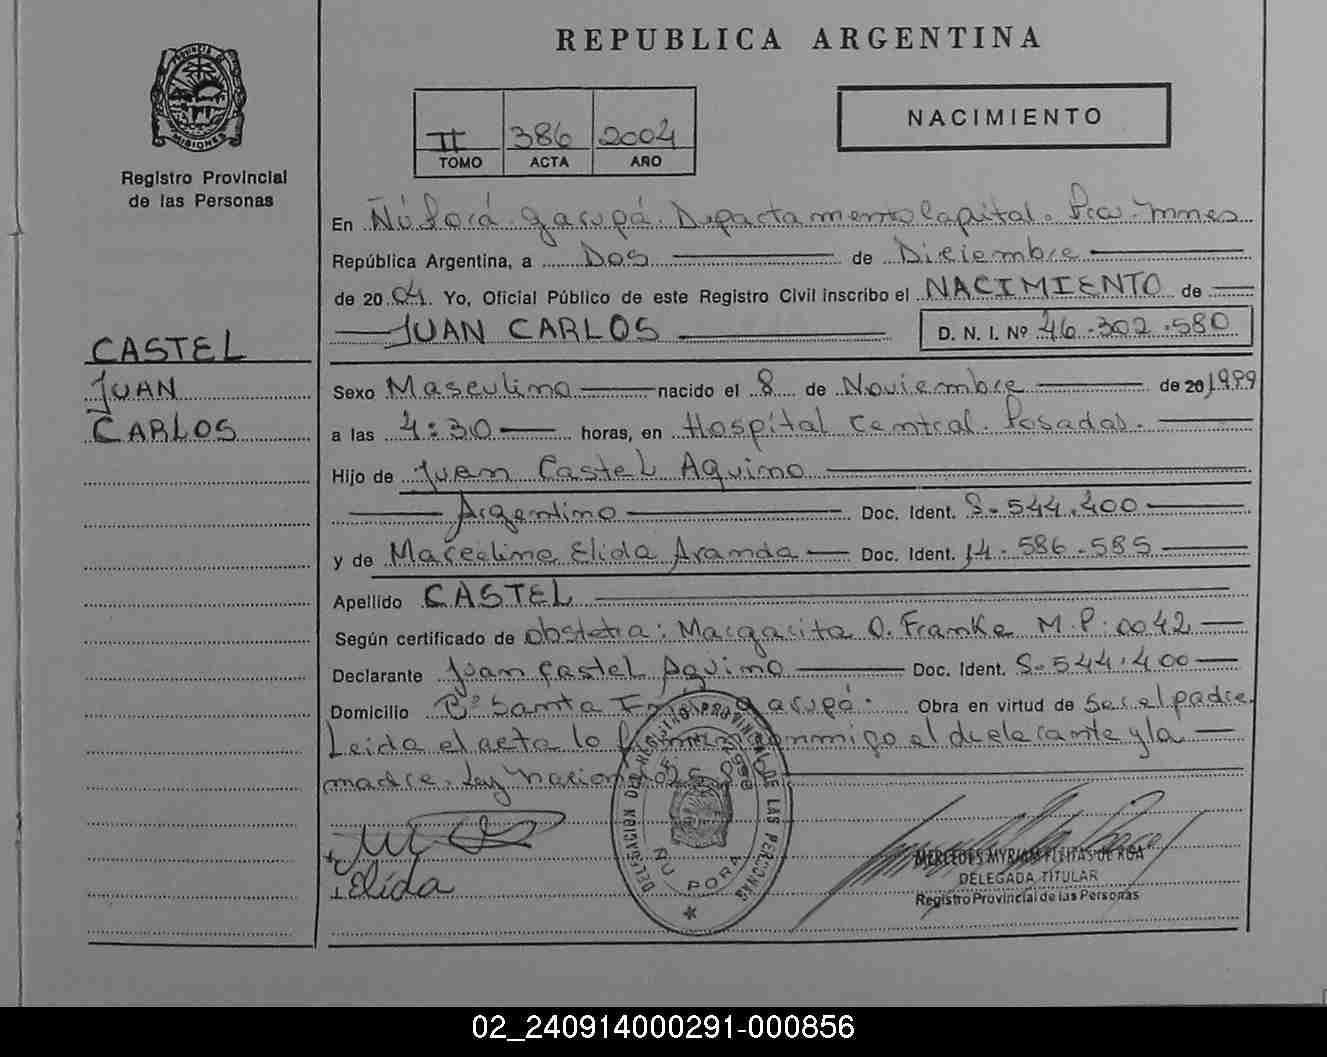 REPUBLICA ARGENTINA
PROVINCIA D
MISIONES
Registro Provincial
de las Personas
II 386 2004
TOMO ACTA AÑO
NACIMIENTO
En Ñú Porá. Garupá. Departamento Capital. Pcia. Mnes
República Argentina, a Dos de Diciembre
de 2004. Yo, Oficial Público de este Registro Civil inscribo el NACIMIENTO de
JUAN CARLOS D. N. I. Nº 46.302.580
CASTEL
JUAN
CARLOS
Sexo Masculino nacido el 8 de Noviembre de 20 1999
a las 4:30 horas, en Hospital Central. Posadas.
Hijo de Juan Castel Aquino
Argentino Doc. Ident. 8.544.400
y de Marcelina Elida Aranda Doc. Ident. 14.586.585
Apellido CASTEL
Según certificado de obstetra: Margarita O. Franke M.P. 0042
Declarante Juan Castel Aquino Doc. Ident. 8.544.400
Domicilio Bº Santa Garupá. Obra en virtud de Ser el padre.
Leida el acta lo conmigo el declarante y la
madre. Ley Nacional
Elida
DELEGACION DEL REGISTRO PROVINCIAL DE LAS PERSONAS
ÑU PORA
MERCEDES MYRIAM FLEITAS DE ROA
DELEGADA TITULAR
Registro Provincial de las Personas
02_240914000291-000856